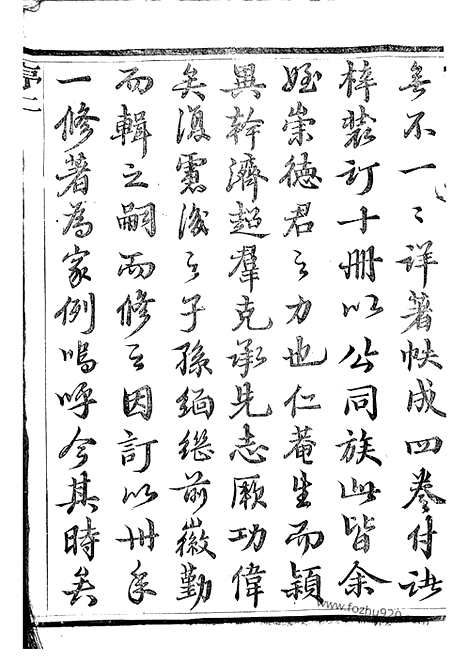 無不一ミ詳著帙成四卷付諸
梓裝訂十冊以公同族此皆余
姪崇德君之力也仁菴生而穎
異幹濟超羣克承先志厥功偉
矣復慮後之子孫緬繼前徽勤
而輯之嗣而修之因訂以卅年
一修著為家例嗚呼今其時矣
序二
www.fozhu920.com